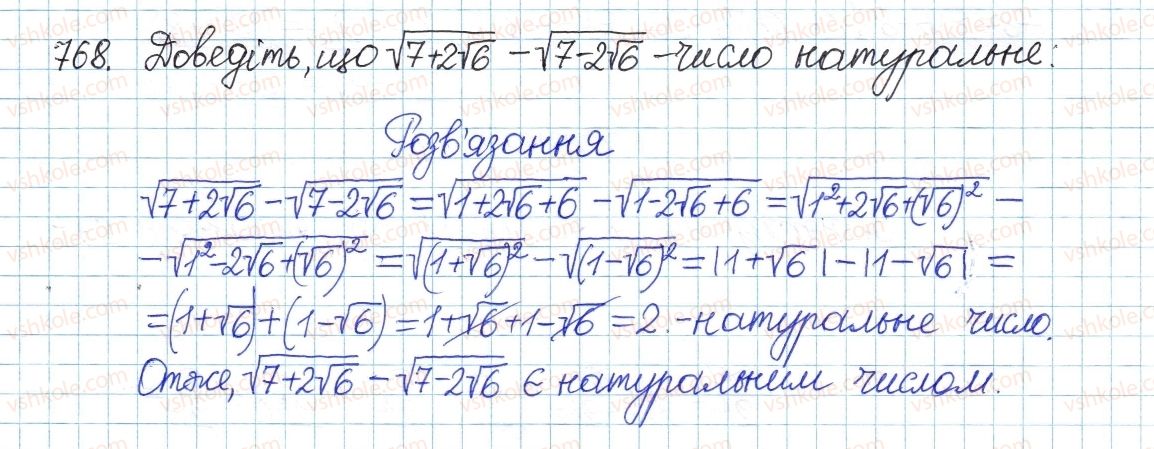 768. Доведіть, що √(7+2√6) − √(7−2√6) – число натуральне:
Розв'язання
√(7+2√6) − √(7−2√6) = √(1+2√6+6) − √(1−2√6+6) = √(1²+2√6+(√6)²) −
− √(1²−2√6+(√6)²) = √((1+√6)²) − √((1−√6)²) = |1+√6| − |1−√6| =
= (1+√6) + (1−√6) = 1+√6+1−√6 = 2. – натуральне число.
Отже, √(7+2√6) − √(7−2√6) є натуральним числом.